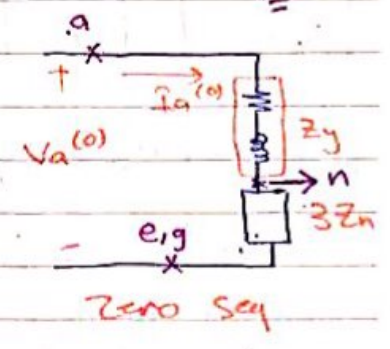 a
+
Ia(0)
Zy
Va(0)
n
3Zn
e,g
-
Zero Seq